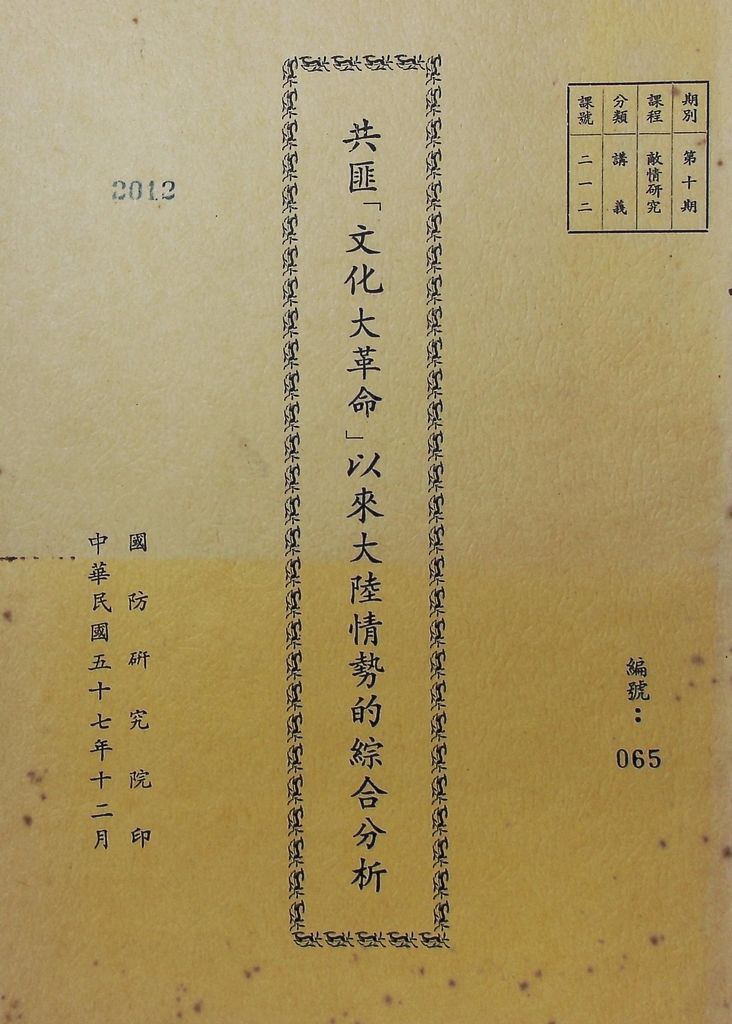 期別 第十期
課程 敵情研究
分類 講義
課號 二一二
編號：065
共匪「文化大革命」以來大陸情勢的綜合分析
2012
國防研究院印
中華民國五十七年十二月